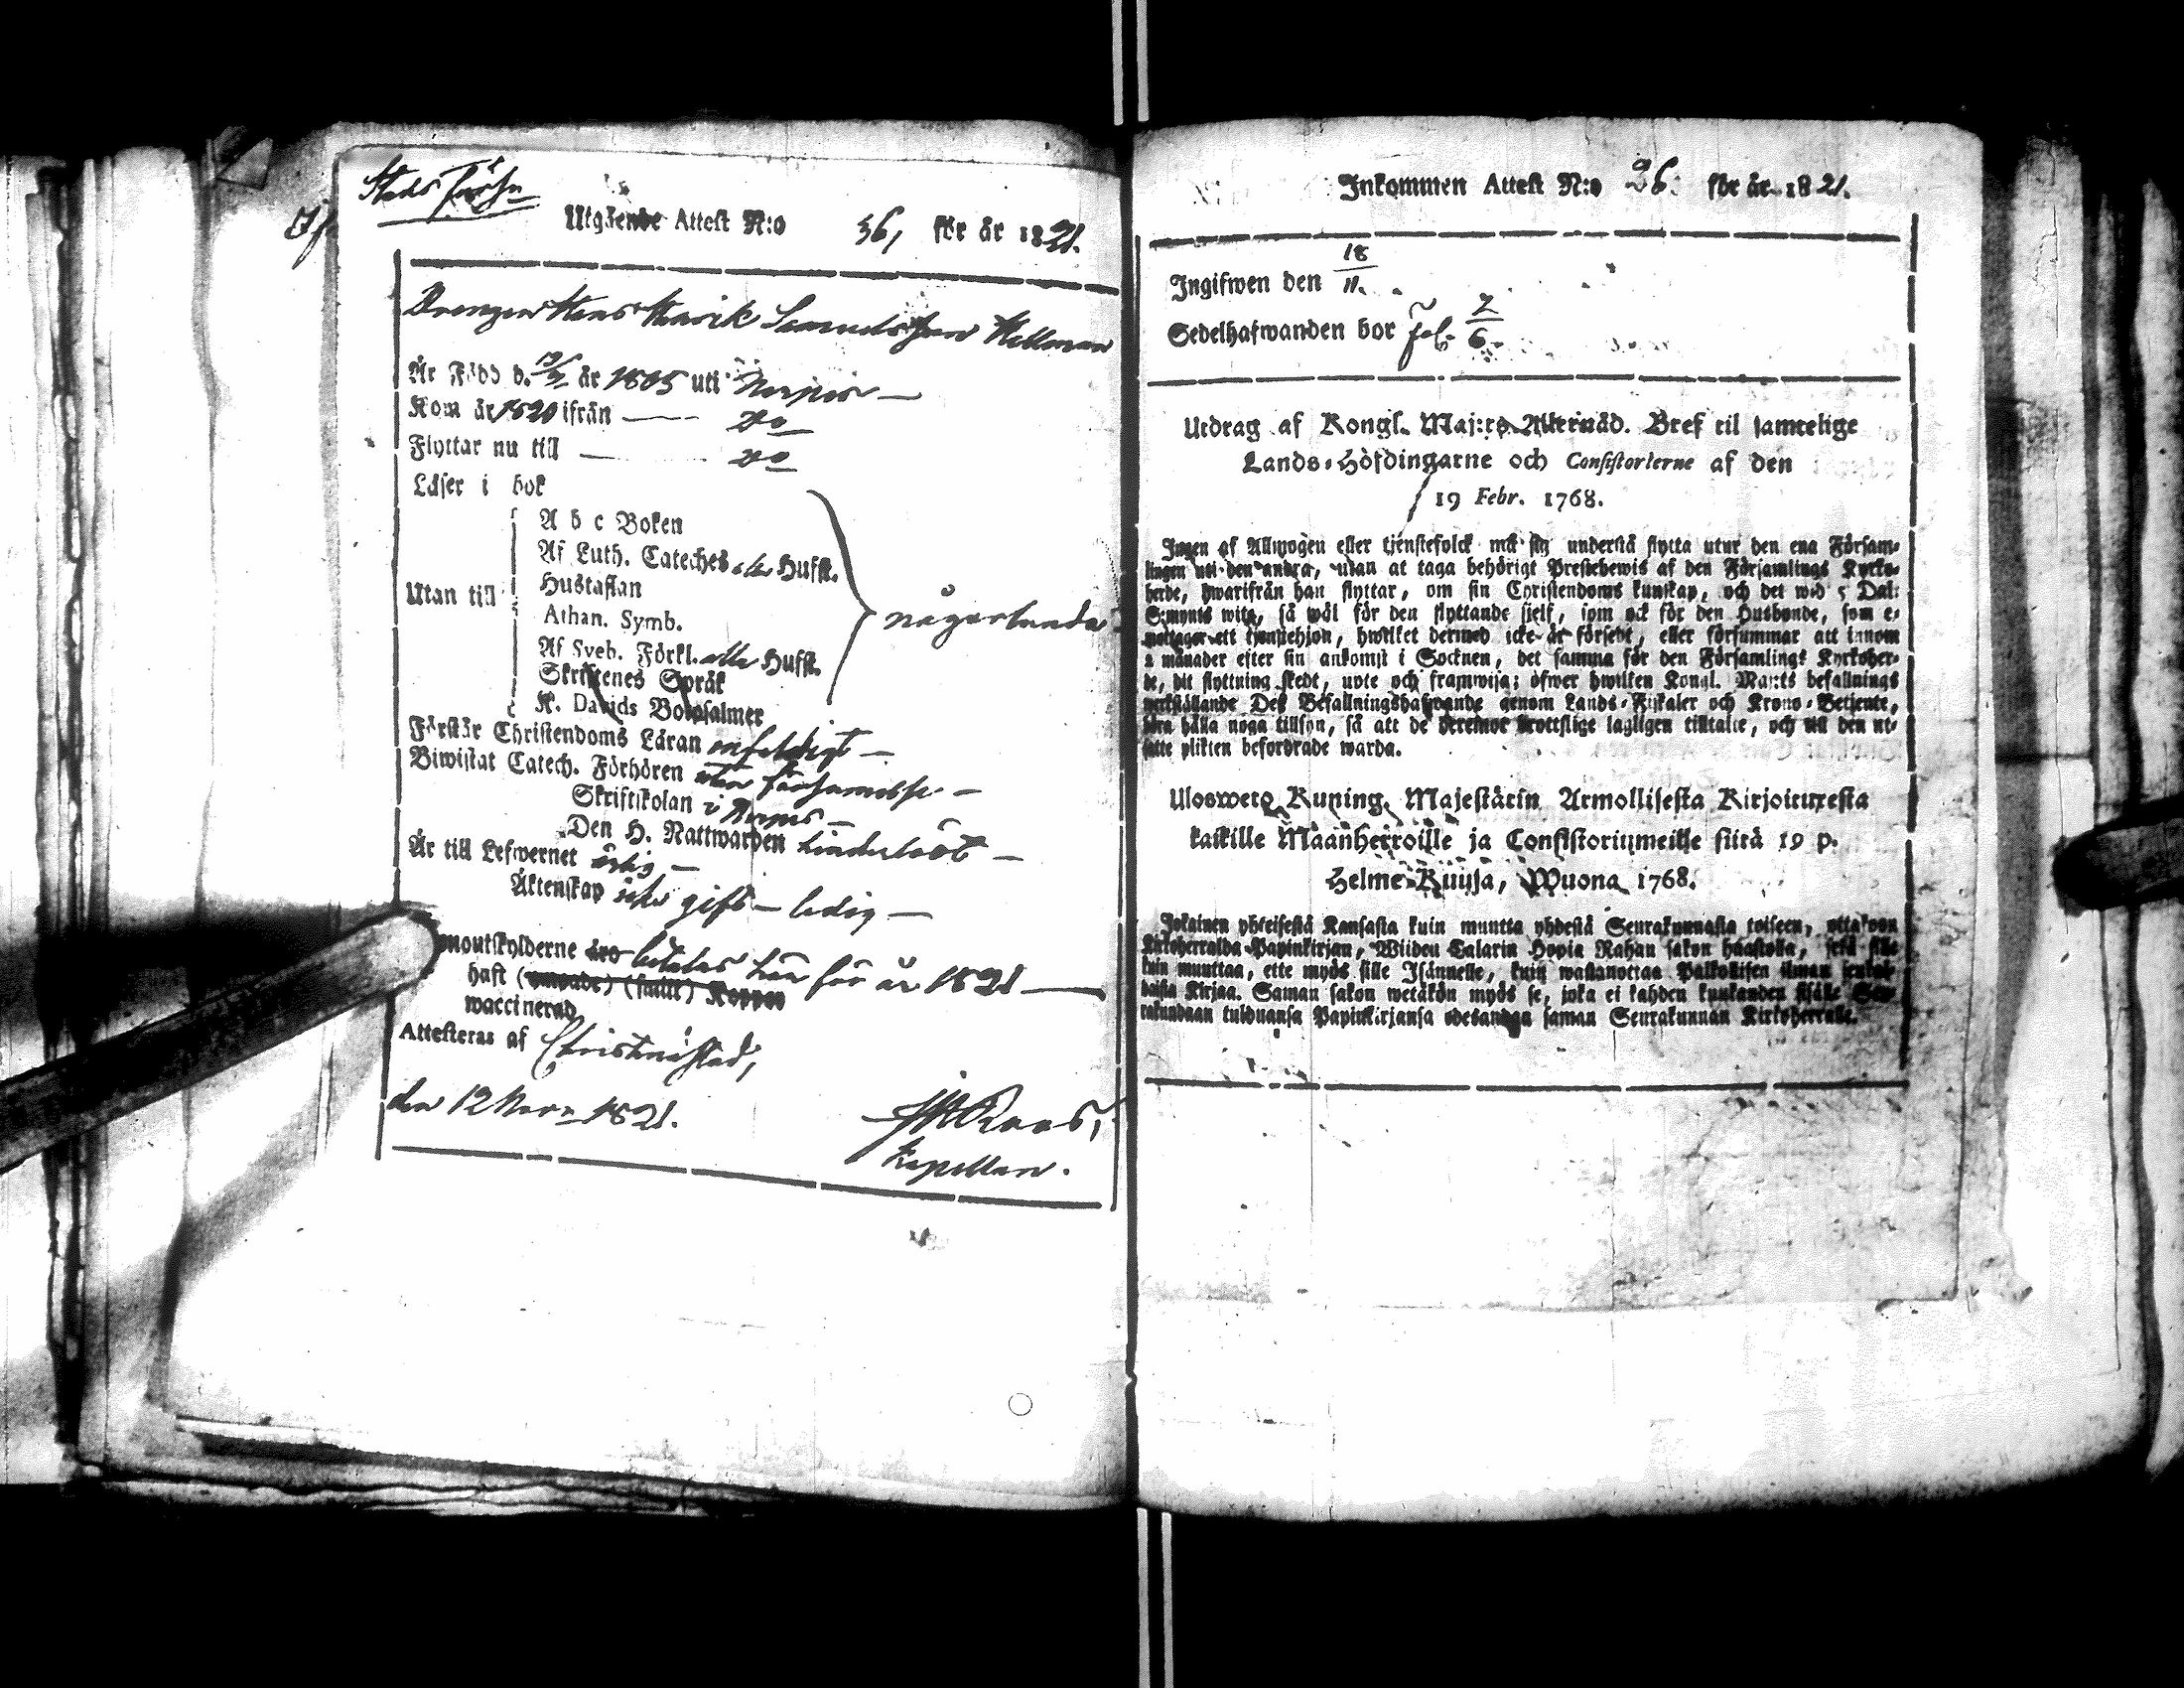 Stads Förs:n
Utgående Attest N:o 36, för år 1821.
Drengen Hans Henrik Samuelsson Hellman
Är Född d. 19/9 år 1805 uti Nerpes —
Kom år 1820 ifrån — do
Flyttar nu till — do
Läser i bok
A b c Boken
Af Luth. Cateches eller Husft.
Utan till Hustaflan
Athan. Symb.
någorlunda
Af Sveb. Förkl. eller Husft.
Skriftenes Språk
K. Davids Botpsalmer
Förstår Christendoms Läran enfaldigt —
Biwistat Catech. Förhören utan försummelse —
Skriftskolan i Nerpes —
Den H. Nattwarden hinderlöst —
Är till Lefwernet ärlig —
Äktenskap icke gift — ledig —
moutskylderne äro betalas här för år 1821 —
haft (umpade) (smitt) Koppor
waccinerad
Attesteras af Christinæstad,
den 12 Nov: 1821.
Kapellan.
Inkommen Attest N:o 36. för år 1821.
Ingifwen den 18/11.
Sedelhafwanden bor fol. 7/6.
Utdrag af Kongl. Maj:ts Allernåd. Bref til samtelige
Lands-Höfdingarne och Consistorierne af den
19 Febr. 1768.
Ingen af Allmogen eller tjenstefolck må sig understå flytta utur den ena Försam-
lingen uti den andra, utan at taga behörigt Prestebewis af den Församlings Kyrko-
herde, hwarifrån han flyttar, om sin Christendoms kunskap, och det wid 5 Dal:
S:mynts wite, så wäl för den flyttande sjelf, som ock för den Husbonde, som e-
mottager ett tjenstehjon, hwilket dermed icke är försedt, eller försummar att innom
2 månader efter sin ankomst i Socknen, det samma för den Församlings Kyrkoher-
de, dit flyttning skedt, upte och framwisa; öfwer hwilken Kongl. Maj:ts befallnings
werkställande Dess Befallningshafwande genom Lands-Fiskaler och Krono-Betjente,
böra hålla noga tillsyn, så att de deremot brottslige lagligen tilltalte, och till den ut-
satte plikten befordrade warda.
Uloswetо Kuning. Majestätin Armollisesta Kirjoituxesta
kaikille Maanherroille ja Consistoriumeille siitä 19 p.
Helme-Kuuja, Wuona 1768.
Jokainen yhteisestä Kansasta kuin muutta yhdestä Seurakunnasta toiseen, ottakoon
Kirkoherralda Papinkirjan, Wiiden Talarin Hopia Rahan sakon haastolla, sekä sille
kuin muuttaa, ette myös sille Isännelle, kuin wastanottaa Palkollisen ilman senkal-
daista Kirjaa. Saman sakon wetäkön myös se, joka ei kahden kuukanden sisälle Seu-
rakundaan tulduansa Papinkirjansa edesanna saman Seurakunnan Kirkoherralle.